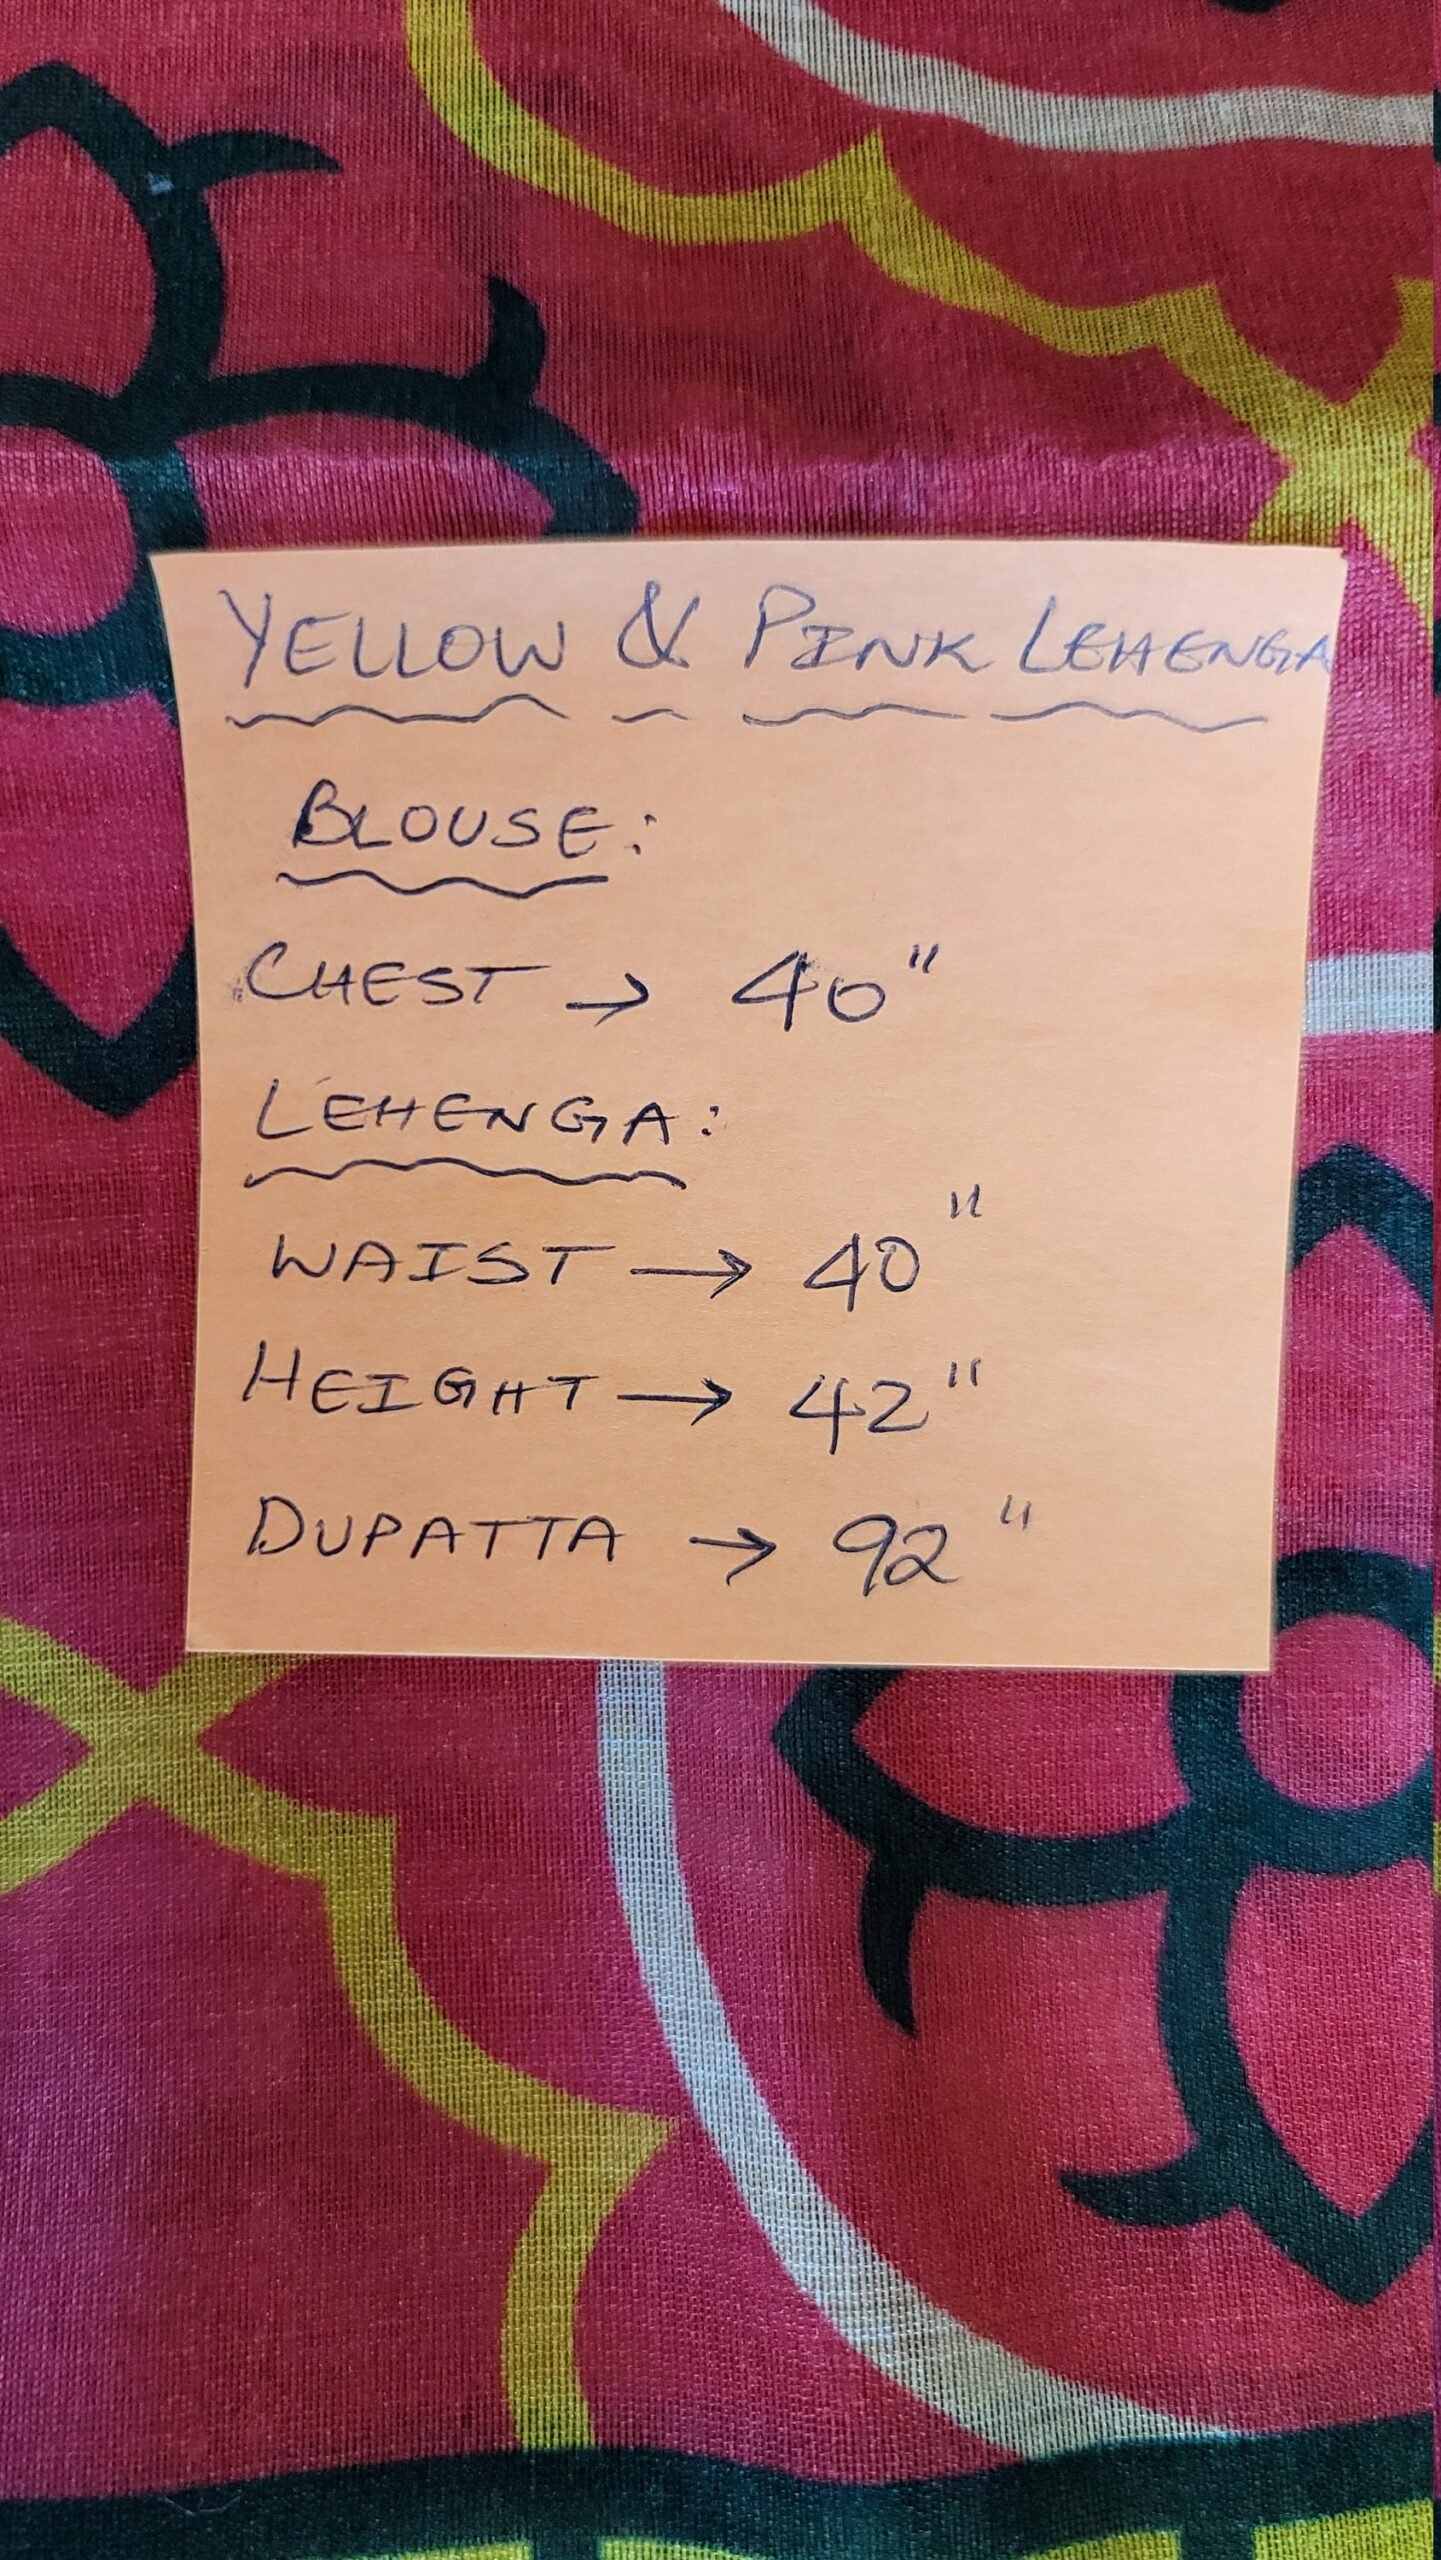 YELLOW & PINK LEHENGA
BLOUSE:
CHEST → 40"
LEHENGA:
WAIST → 40"
HEIGHT → 42"
DUPATTA → 92"